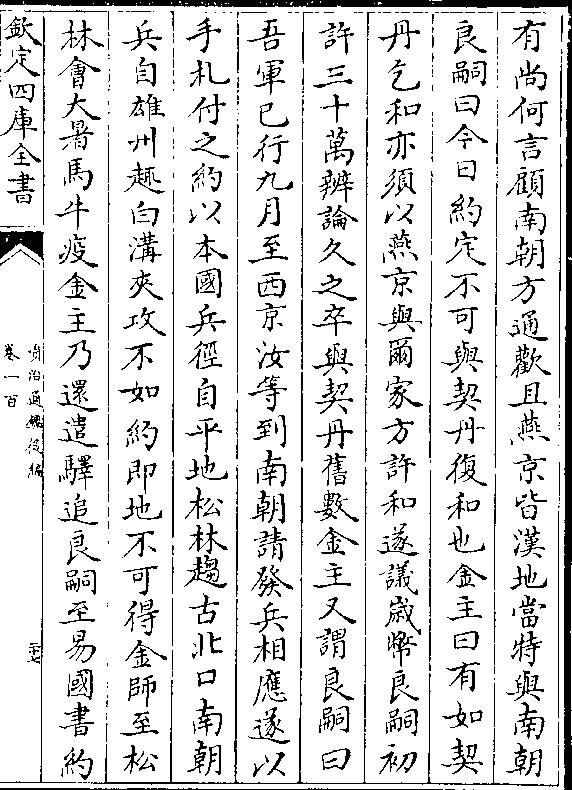 有尚何言顧南朝方通歡且燕京皆漢地當特與南朝
良嗣曰今日約定不可與契丹復和也金主曰有如契
丹乞和亦須以燕京與爾家方許和遂議歲幣良嗣初
許三十萬辨論久之卒與契丹舊數金主又謂良嗣曰
吾軍已行九月至西京汝等到南朝請發兵相應遂以
手札付之約以本國兵徑自平地松林趨古北口南朝
兵自雄州趣白溝夾攻不如約即地不可得金師至松
林會大暑馬牛疫金主乃還遣驛追良嗣至易國書約
欽定四庫全書
資治通鑑後編
卷一百
三十七